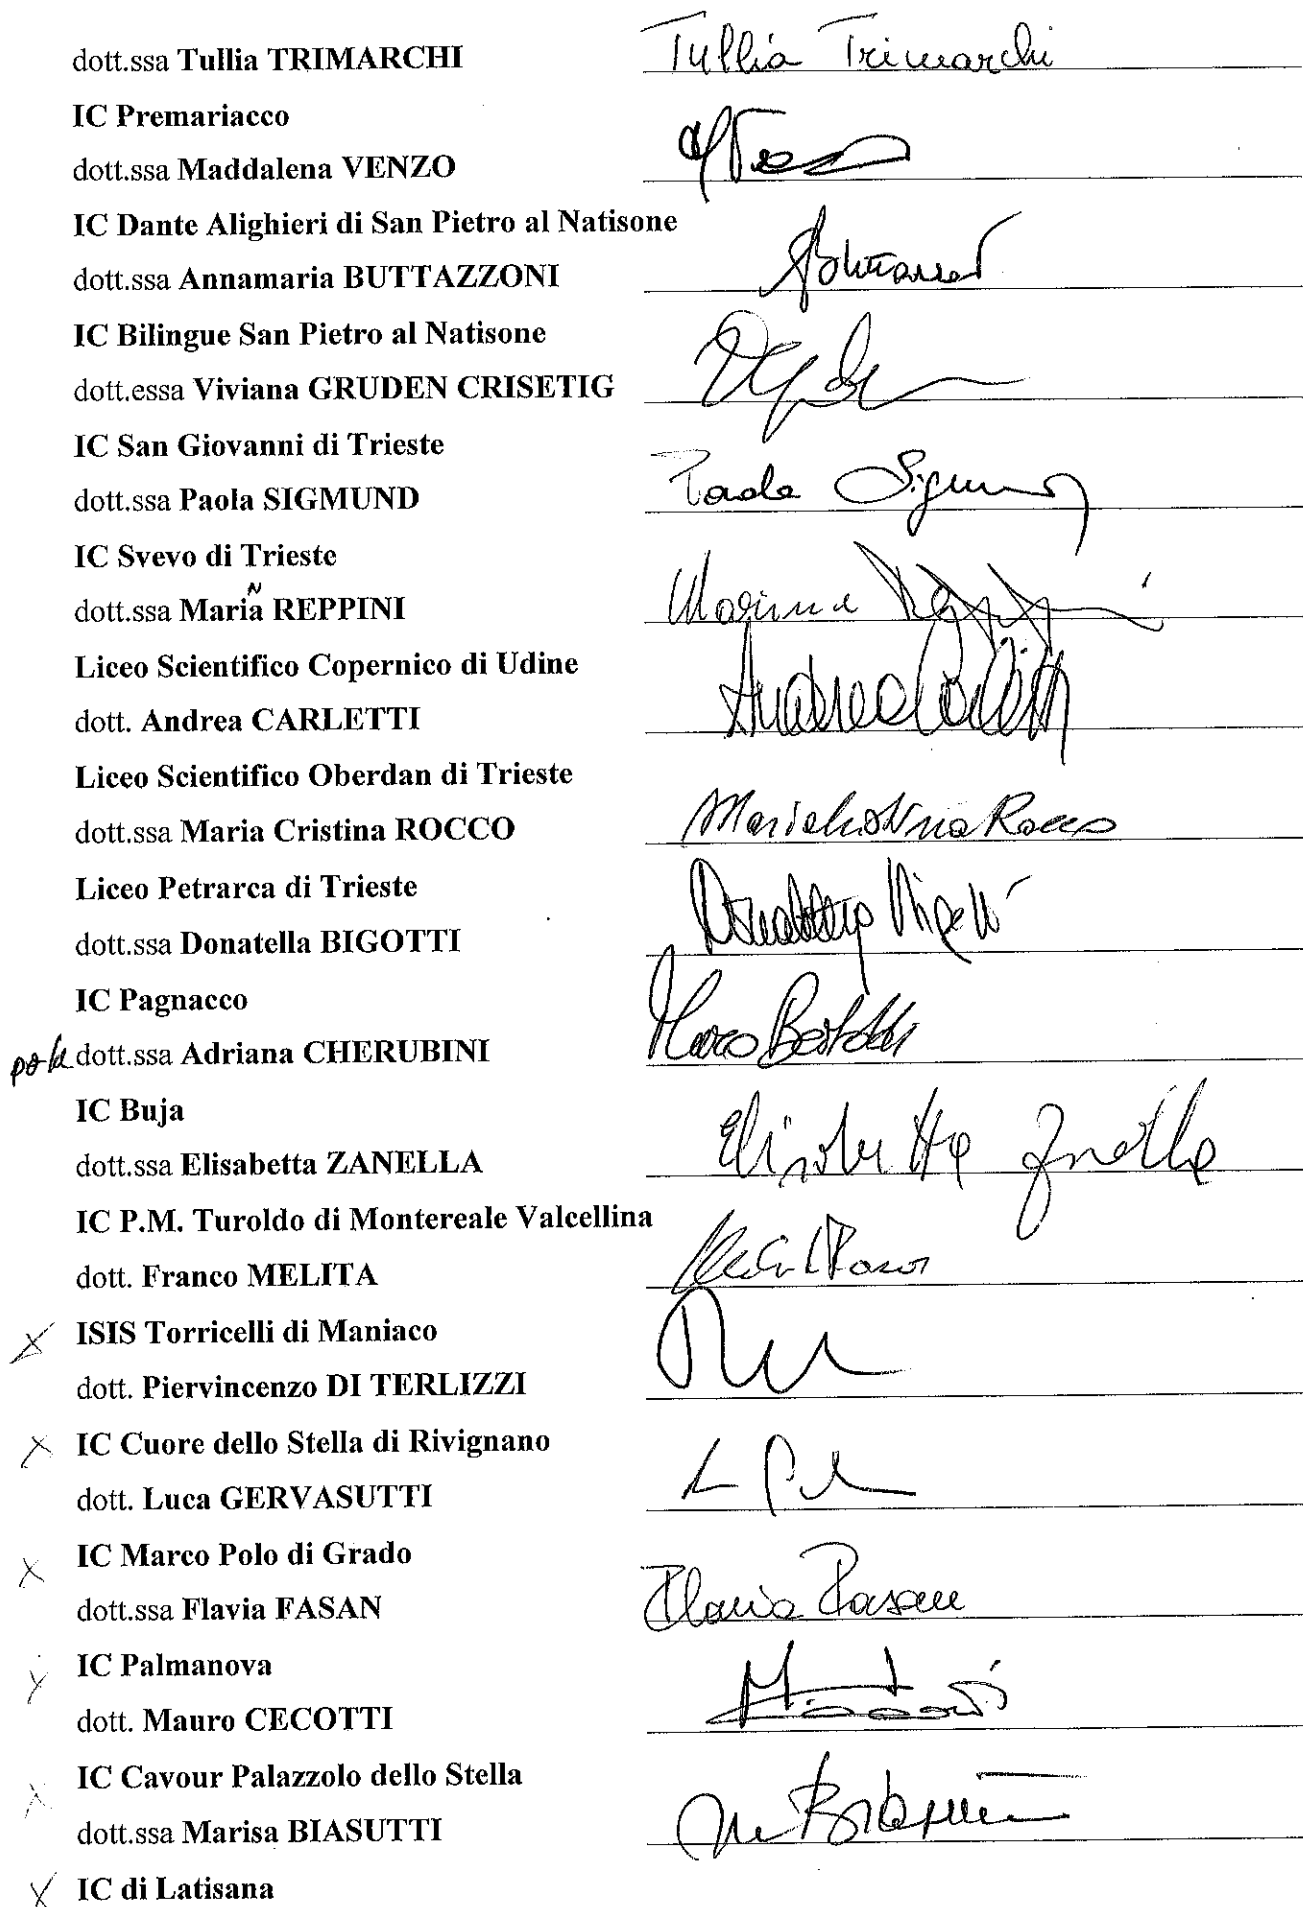 dott.ssa Tullia TRIMARCHI Tullia Trimarchi
IC Premariacco
dott.ssa Maddalena VENZO
IC Dante Alighieri di San Pietro al Natisone
dott.ssa Annamaria BUTTAZZONI
IC Bilingue San Pietro al Natisone
dott.essa Viviana GRUDEN CRISETIG
IC San Giovanni di Trieste
dott.ssa Paola SIGMUND Paola Sigmund
IC Svevo di Trieste
N
dott.ssa Maria REPPINI Marina Reppini
Liceo Scientifico Copernico di Udine
dott. Andrea CARLETTI Andrea Carletti
Liceo Scientifico Oberdan di Trieste
dott.ssa Maria Cristina ROCCO Maria Cristina Rocco
Liceo Petrarca di Trieste
dott.ssa Donatella BIGOTTI Donatella Bigotti
IC Pagnacco
dott.ssa Adriana CHERUBINI Marco Bertoldi
IC Buja
dott.ssa Elisabetta ZANELLA Elisabetta Zanella
IC P.M. Turoldo di Montereale Valcellina
dott. Franco MELITA
X ISIS Torricelli di Maniaco
dott. Piervincenzo DI TERLIZZI
X IC Cuore dello Stella di Rivignano
dott. Luca GERVASUTTI
X IC Marco Polo di Grado
dott.ssa Flavia FASAN Flavia Fasan
X IC Palmanova
dott. Mauro CECOTTI
X IC Cavour Palazzolo dello Stella
dott.ssa Marisa BIASUTTI
X IC di Latisana